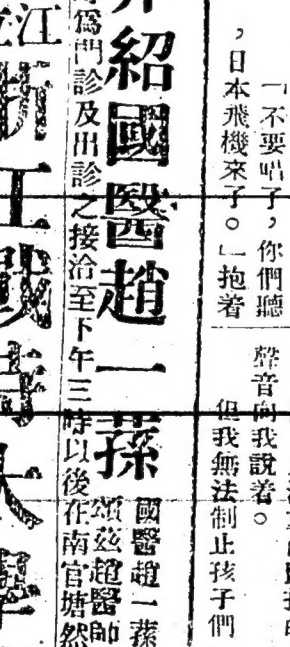 「不要唱了，你們聽
，日本飛機來了。」抱着
聲音向我說着。
但我無法制止孩子們
介紹國醫趙一蓀
國醫趙一蓀
頌茲趙醫師
為門診及出診之接洽至下午三時以後在南官塘然
江